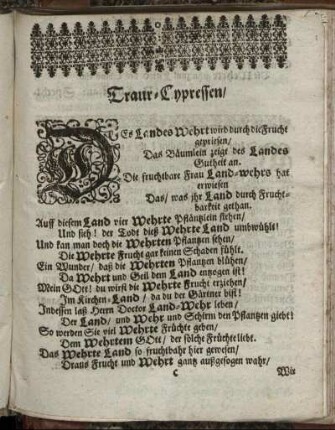 Traur-Cypressen/
DEs Landes Wehrt wird durch die Frucht
gepriesen/
Das Bäumlein zeigt des Landes
Gutheit an.
Die fruchtbare Frau Land-wehrs hat
erwiesen
Das/ was jhr Land durch Frucht-
barkeit gethan.
Auff diesem Land vier Wehrte Pfläntzlein stehen/
Und sich! der Todt dieß Wehrte Land umbwühlt!
Und kan man doch die Wehrten Pflantzen sehen/
Die Wehrte Frucht gar keinen Schaden fühlt.
Ein Wunder/ daß die Wehrten Pflantzen blühen/
Da Wehrt und Geil dem Land entzogen ist!
Mein GOtt! du wirst die Wehrte Frucht erziehen/
Im Kirchen-Land/ da du der Gärtner bist!
Indessen laß Herrn Doctor Land-Wehr leben/
Der Land/ und Wehr und Schirm den Pflantzen giebt!
So werden Sie viel Wehrte Früchte geben/
Dem Wehrtem GOtt/ der solche Früchte liebt.
Das Wehrte Land so fruchtbahr hier gewesen/
Draus Frucht und Wehrt gantz außgesogen wahr/
C
Wir